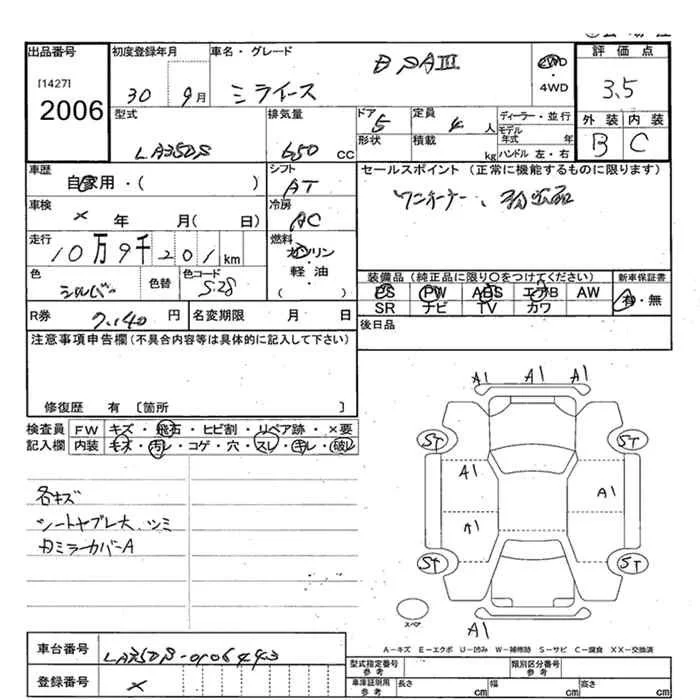 出品番号
[1427]
2006
初度登録年月
30 9月
車名・グレード
ミライース B SAIII
2WD
・
4WD
評価点
3.5
外装 内装
B C
型式
LA350S
排気量
650 CC
ドア
5
形状
定員
4 人
積載
kg
ディーラー・並行
モデル年式 年
ハンドル 左・右
車歴
自家用・( )
シフト
AT
車検
× 年 月( 日)
冷房
AC
走行
10万9千201km
燃料
ガソリン
軽油
( )
色
シルバー
色替
色コード
S28
R券
7,140 円
名変期限 月 日
セールスポイント (正常に機能するものに限ります)
ワンオーナー、
装備品 (純正品に限り○をつけてください)
PS PW ABS エアB AW
SR ナビ TV カワ
新車保証書
有・無
後日品
注意事項申告欄(不具合内容等は具体的に記入して下さい)
修復歴 有 [箇所 ]
検査員記入欄
FW キズ・飛石・ヒビ割・リペア跡・×要
内装 キズ・汚レ・コゲ・穴・スレ・キレ・破レ
各キズ
シートヤブレ大、ツミ
カミラーカバーA
A1 A1 A1
ST ST
A1
A1
A1
ST ST
スペア
A1
A-キズ E-エクボ U-凹み W-補修跡 S-サビ C-腐食 XX-交換済
車台番号
LA350S-0106443
登録番号
×
型式指定番号
参考
類別区分番号
参考
車庫証明用
参考
長さ cm
幅 cm
高さ cm